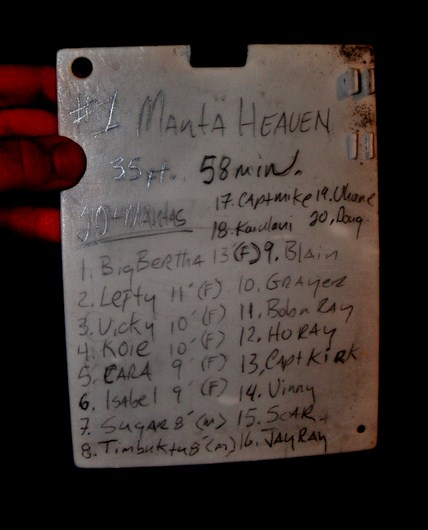 #1 Manta Heaven
35 ft. 58 min.
17. Captmike 19. Uhane
30+ Mantas
18. Kailani 20. Doug
1. Big Bertha 13' (F) 9. Blain
2. Lefty 11' (F) 10. Grayez
3. Vicky 10' (F) 11. Bob n Ray
4. Koie 10' (F) 12. Ho Ray
5. Cara 9' (F) 13. Capt Kirk
6. Isabel 9' (F) 14. Vinny
7. Sugar 8' (m) 15. Scar
8. Timbuktu 8' (m) 16. Jay Ray